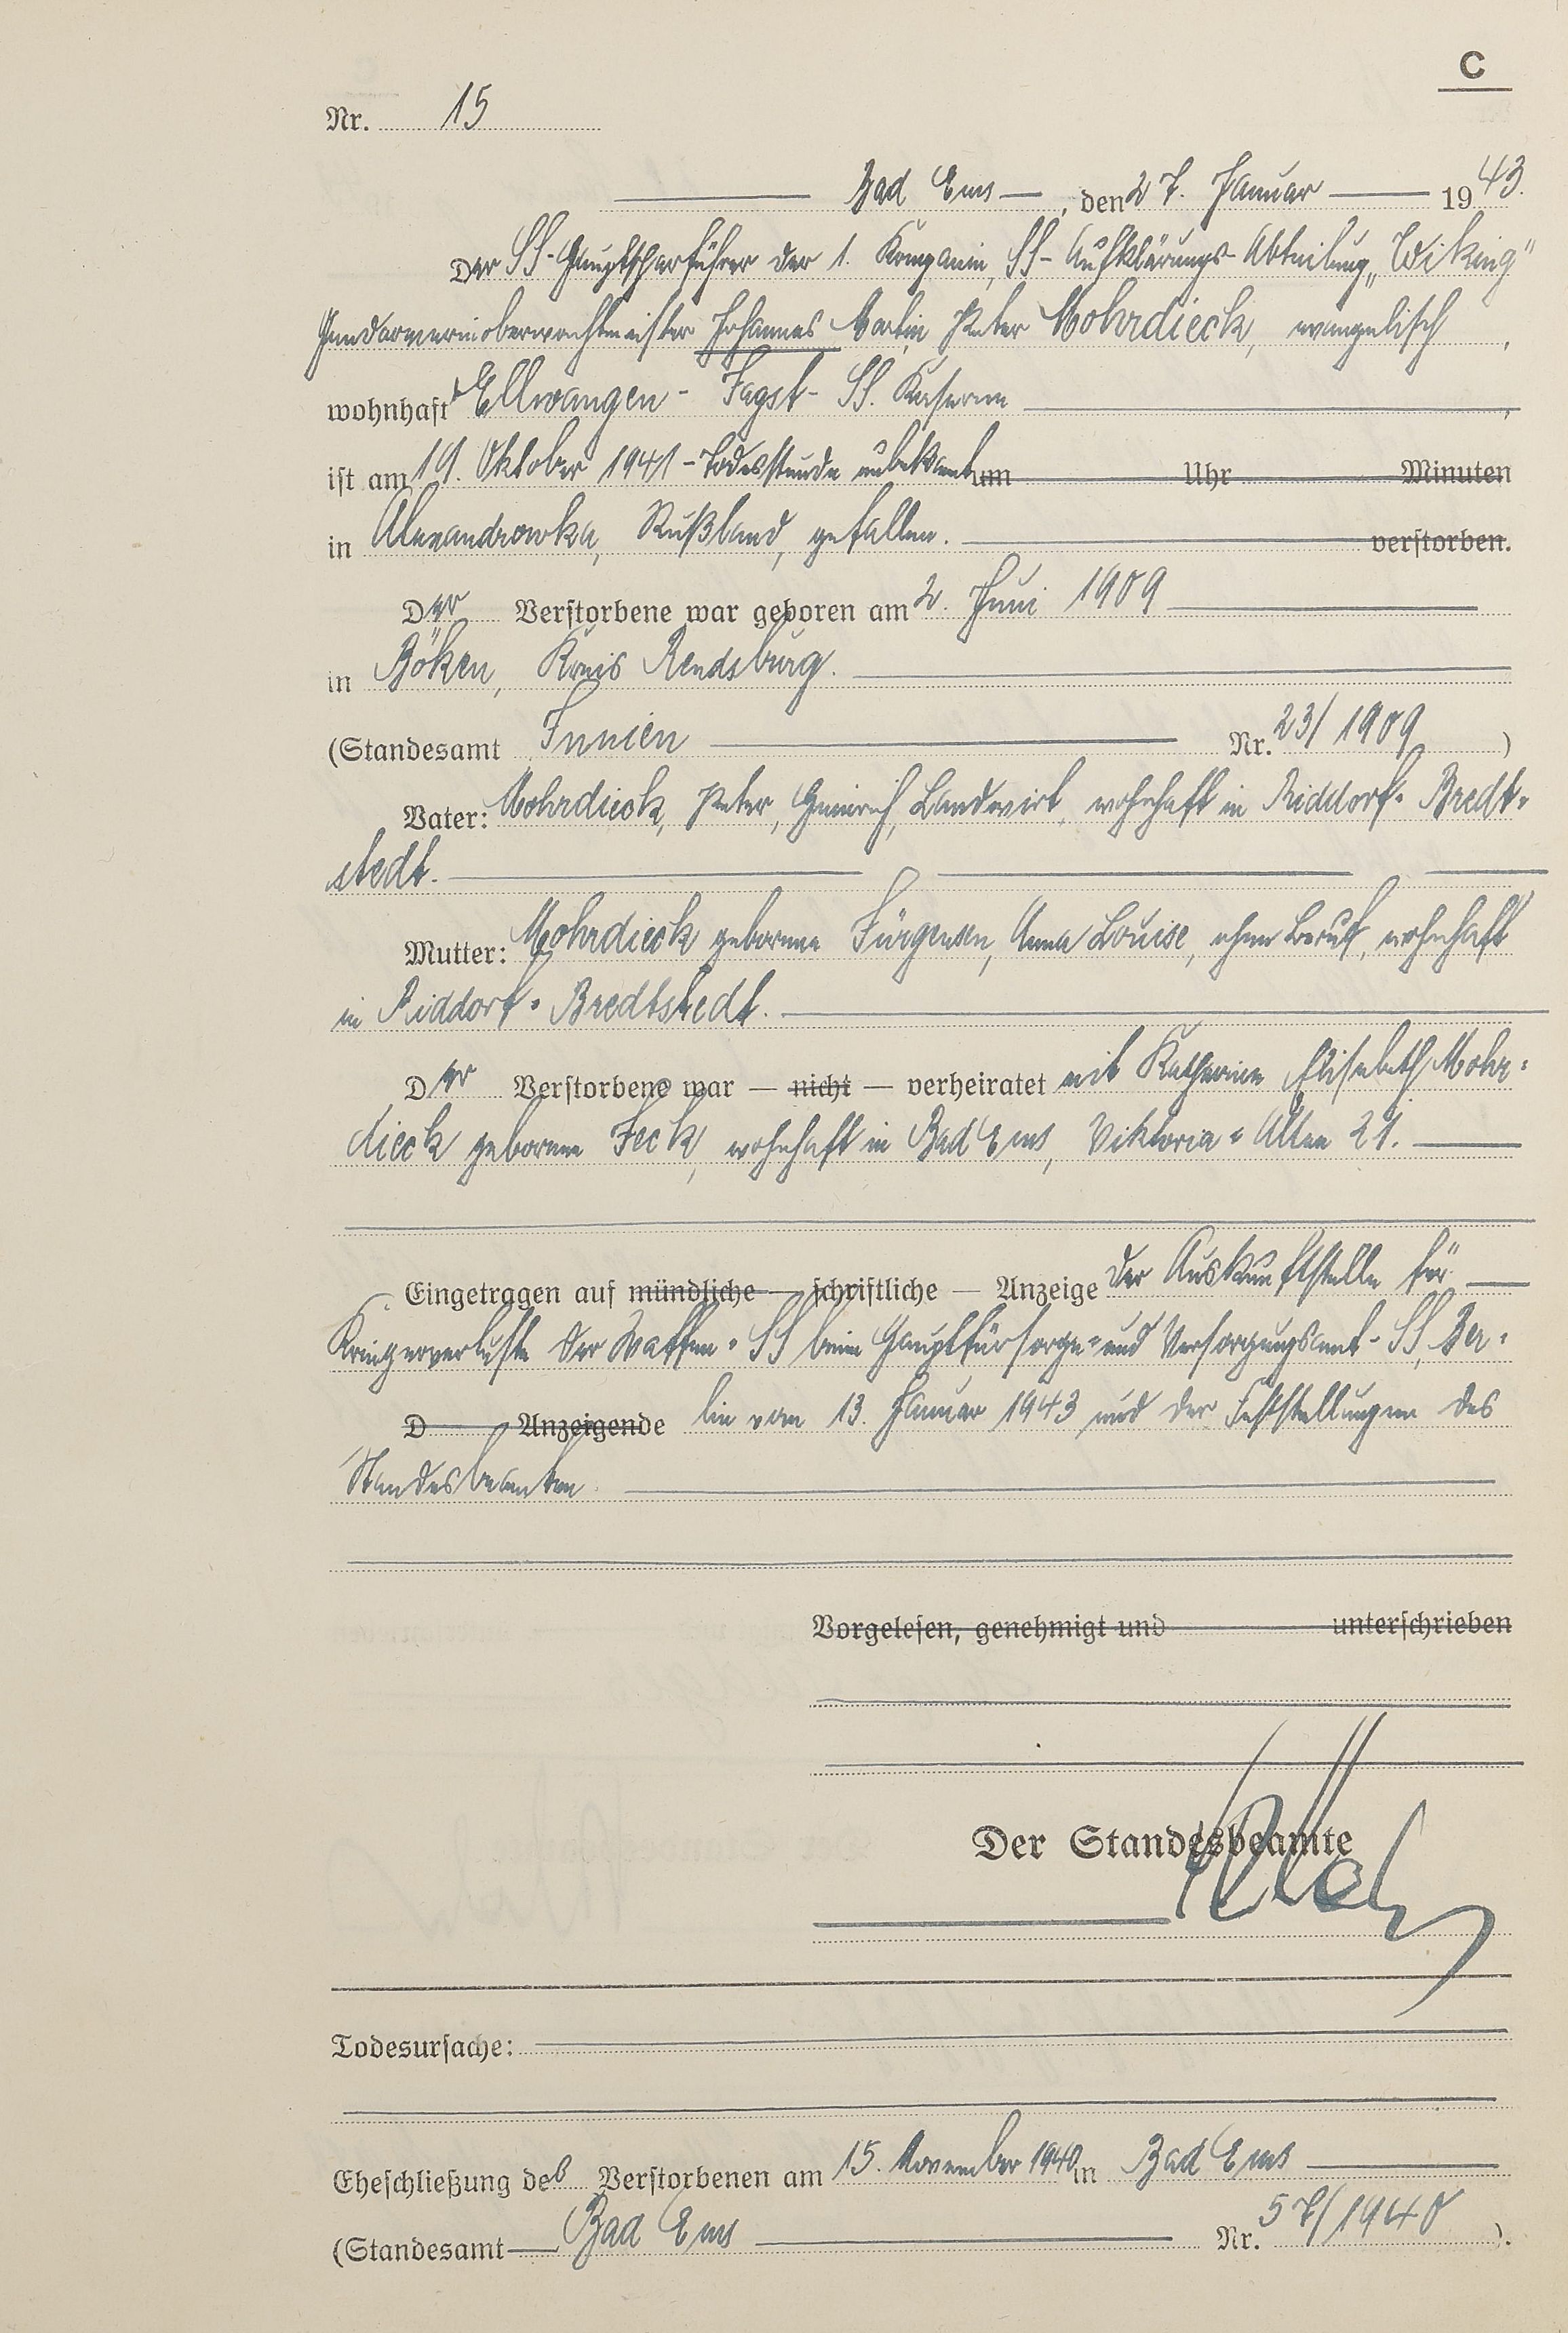 C
Nr. 15
Bad Ems, den 27. Januar 1943.
Der SS-Hauptscharführer der 1. Kompanie, SS-Aufklärungs-Abteilung „Wiking"
Gendarmerieoberwachtmeister Johannes Martin Peter Mohrdieck, evangelisch,
wohnhaft Ellwangen-Jagst-SS. Kaserne,
ist am 19. Oktober 1941 - Todesstunde unbekannt um Uhr Minuten
in Alexandrowka, Rußland, gefallen. verstorben.
Der Verstorbene war geboren am 2. Juni 1909
in Böken, Kreis Rendsburg.
(Standesamt Innien Nr. 23/1909)
Vater: Mohrdieck, Peter, Heinrich, Landwirt, wohnhaft in Riddorf-Bredt-
stedt.
Mutter: Mohrdieck geborene Jürgensen, Anna Louise, ohne Beruf, wohnhaft
in Riddorf-Bredtstedt.
Der Verstorbene war — nicht — verheiratet mit Katharine Elisabeth Mohr-
dieck geborene Jeck, wohnhaft in Bad Ems, Viktoria-Allee 21.
Eingetragen auf mündliche — schriftliche — Anzeige der Auskunftstelle für
Kriegerverluste der Waffen-SS beim Hauptfürsorge- und Versorgungsamt-SS, Ber-
D Anzeigende lin vom 13. Januar 1943 und der Feststellungen des
Standesbeamten.
Vorgelesen, genehmigt und unterschrieben
Der Standesbeamte
Todesursache:
Eheschließung des Verstorbenen am 15. November 1940 in Bad Ems
(Standesamt Bad Ems Nr. 57/1940).